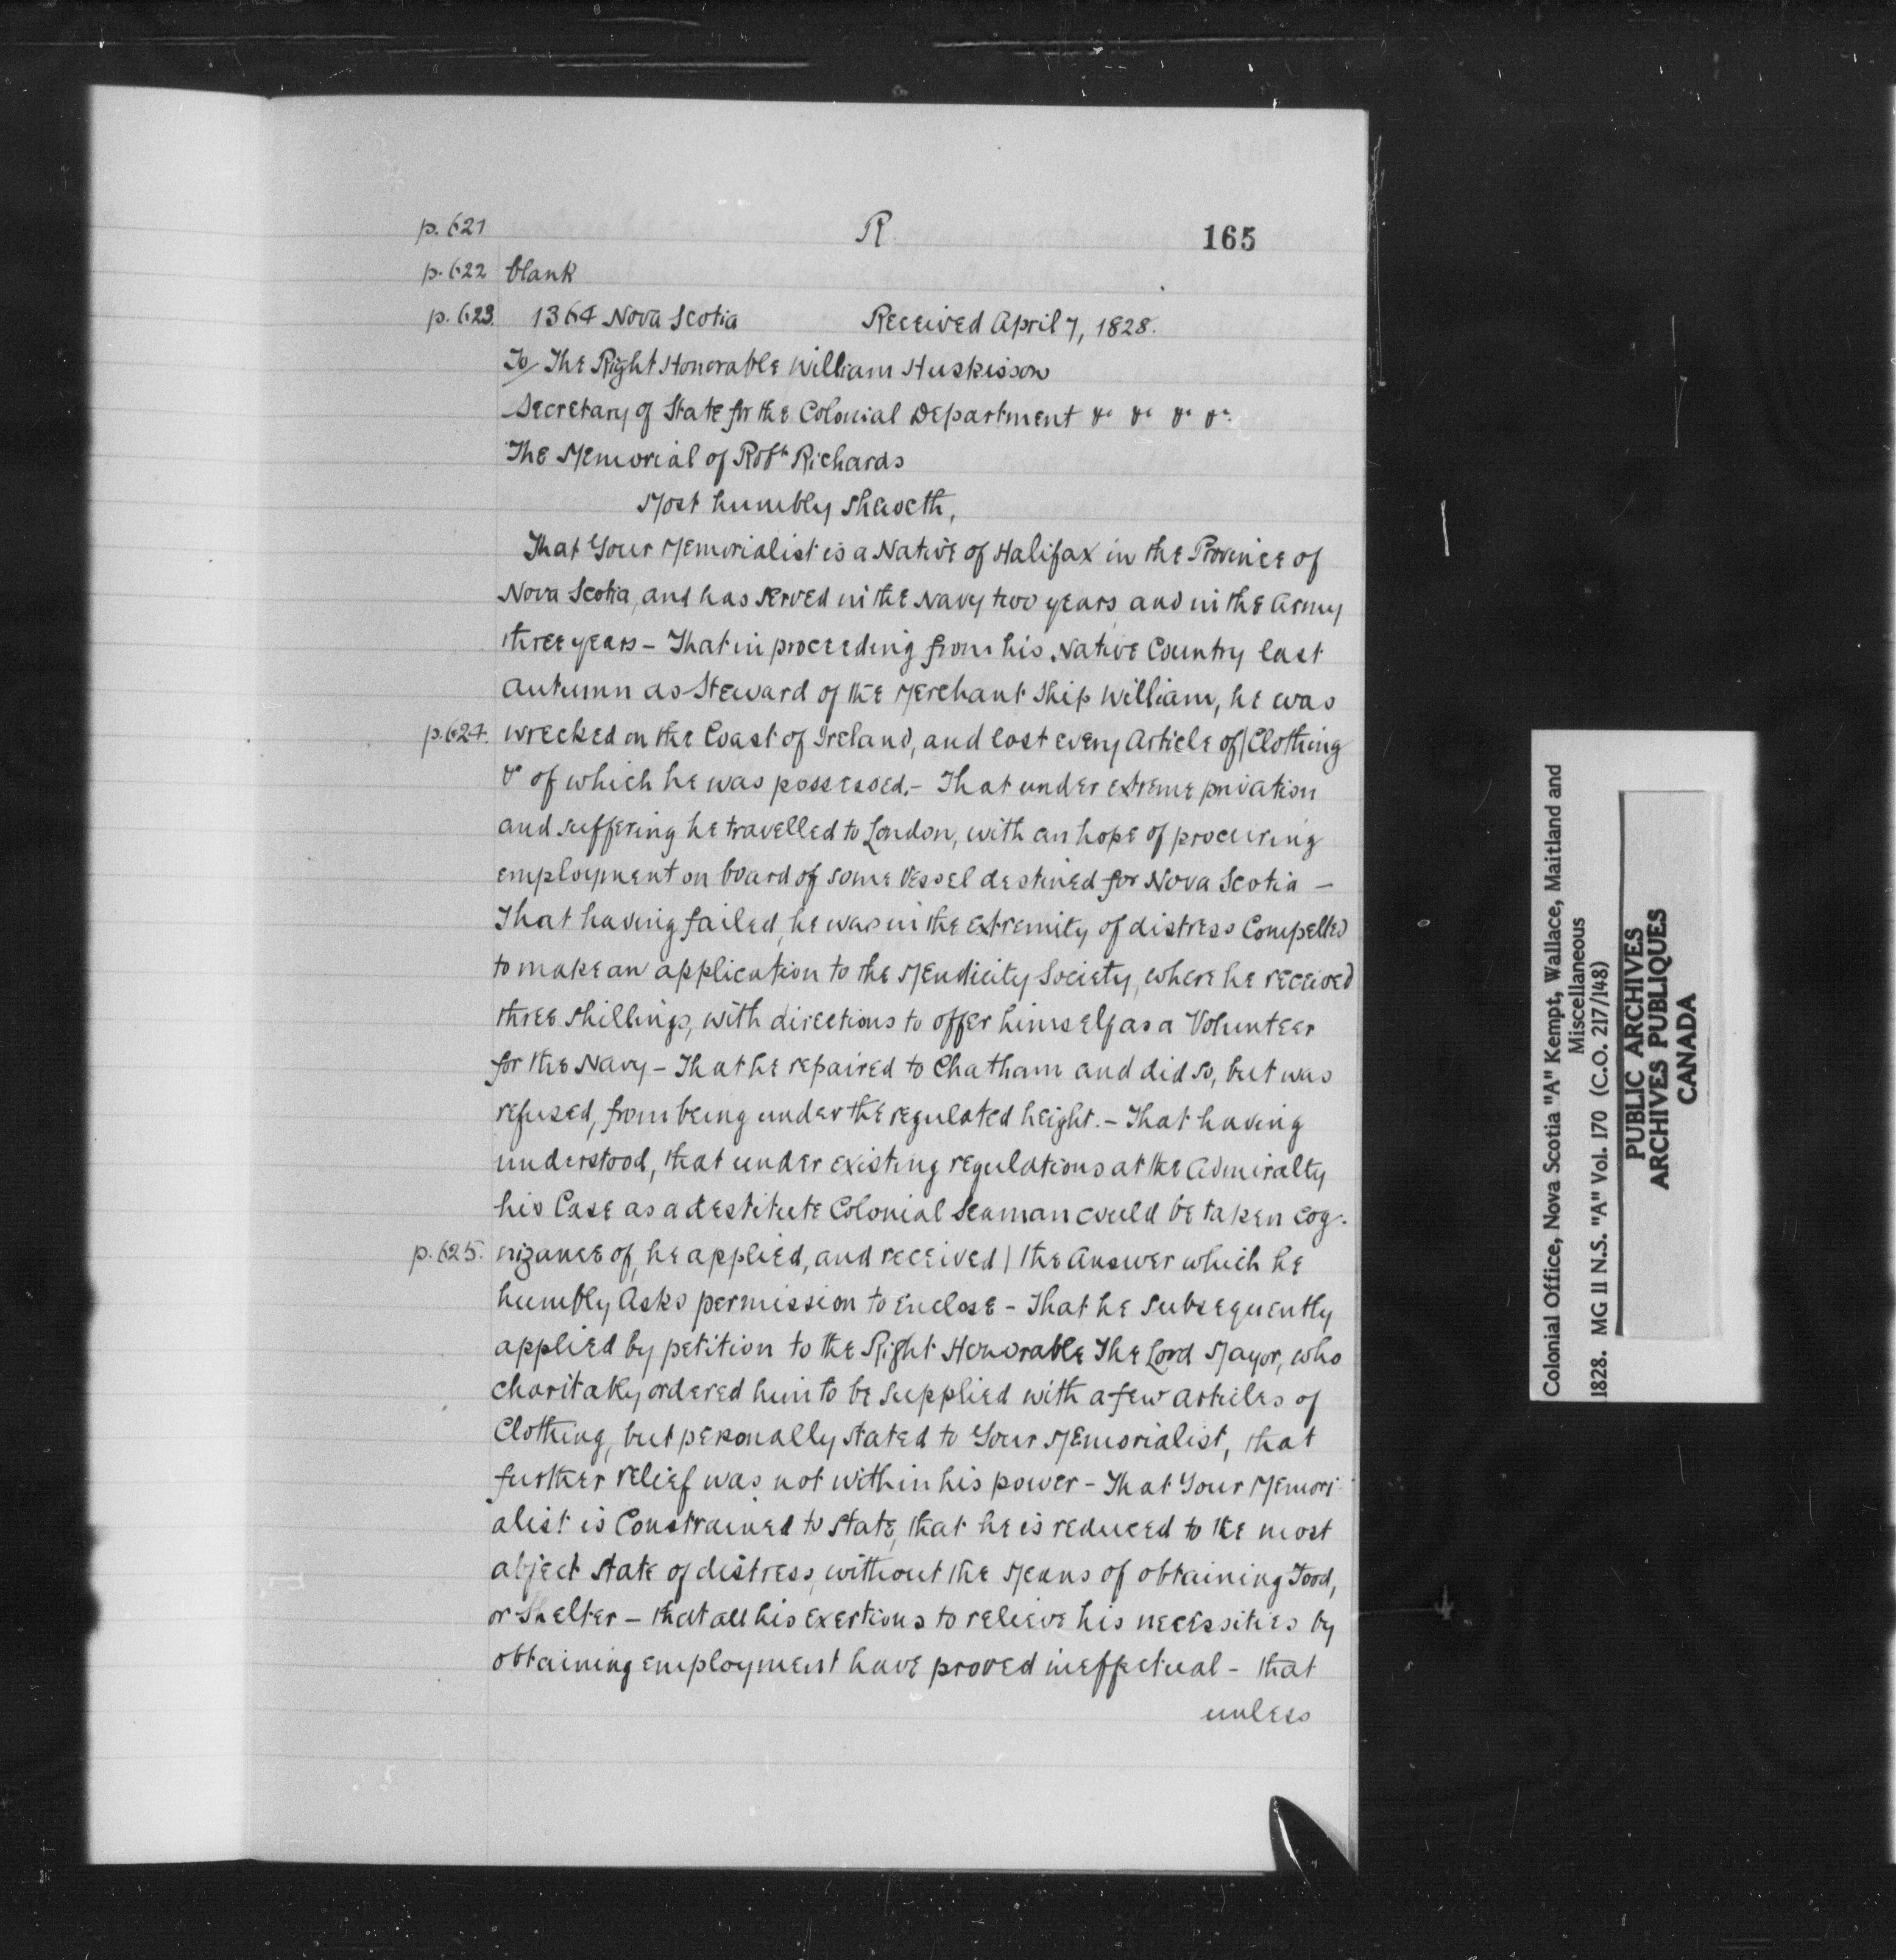 p. 621 R 165
p. 622 blank
p. 623. 1364 Nova Scotia Received April 7, 1828.
To/ The Right Honorable William Huskisson
Secretary of State for the Colonial Department &c &c &c &c.
The Memorial of Robt Richards
Most humbly sheweth,
That Your Memorialist is a Native of Halifax in the Province of
Nova Scotia, and has served in the Navy two years, and in the Army
three years - That in proceeding from his Native Country last
Autumn as Steward of the Merchant Ship William, he was
p. 624. wrecked on the Coast of Ireland, and lost every Article of | Clothing
&c of which he was possessed. - That under extreme privation
and suffering he travelled to London, with an hope of procuring
employment on board of some Vessel destined for Nova Scotia -
That having failed, he was in the extremity of distress Compelled
to make an application to the Mendicity Society, where he received
three shillings, with directions to offer himself as a Volunteer
for the Navy - That he repaired to Chatham and did so, but was
refused, from being under the regulated height. - That having
understood, that under existing regulations at the Admiralty
his Case as a destitute Colonial Seaman could be taken cog-
p. 625. nizance of, he applied, and received | the Answer which he
humbly Asks permission to enclose - That he subsequently
applied by petition to the Right Honorable The Lord Mayor, who
charitably ordered him to be supplied with a few articles of
Clothing, but personally stated to Your Memorialist, that
further relief was not within his power - That Your Memori-
alist is Constrained to state, that he is reduced to the most
abject state of distress, without the Means of obtaining Food,
or Shelter - that all his exertions to relieve his necessities by
obtaining employment have proved ineffectual - that
unless
Colonial Office, Nova Scotia "A" Kempt, Wallace, Maitland and
Miscellaneous
1828. MG 11 N.S. "A" Vol. 170 (C.O. 217/148)
PUBLIC ARCHIVES
ARCHIVES PUBLIQUES
CANADA